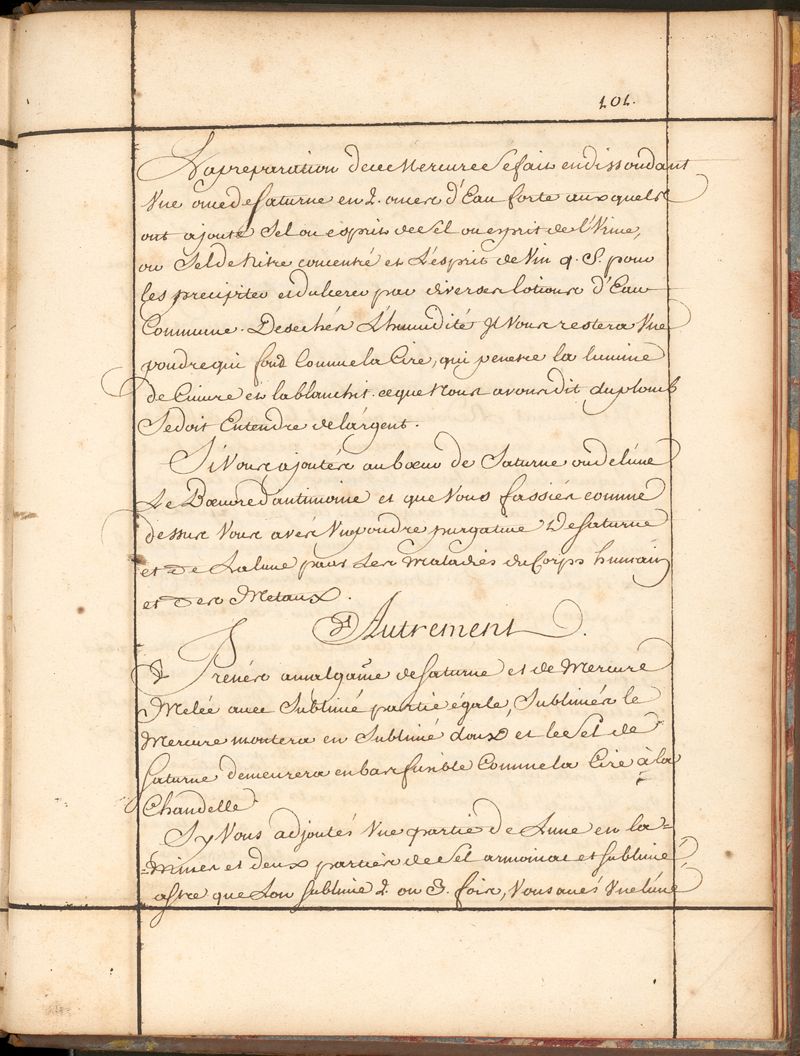 101.
La preparation de ce Mercure se fait en dissoudant
Une once de Saturne en 2. onces d'Eau forte aux quels l'
ont ajoute Sel ou esprit de Sel ou esprit de l'Urine,
ou Sel de Nitre concentré et L'esprit de Vin q. S. pour
les precipiter et dulcierer par diverses lotions d'Eau
Commune. Desechés L'humidité Il Vous restera Une
poudre qui fond Comme la Cire, qui penetre la lumine
de Cuivre et la blanchit. ce que Nous avons dit du plomb
Se doit Entendre de l'argent.
Si Vous ajoutés au bœur de Saturne ou de lune
Le Bœurre d'antimoine et que Vous fassiés comme
dessus Vous avés Un poudre purgative De Saturne
et De La lune pour Les Maladies du Corps humain
et Des Metaux.
Autrement.
Prenés amalgame de Saturne et de Mercure
Melée avec Sublimé partie égale, Sublimés le
Mercure montera en Sublimé doux et le Sel de
Saturne demeurera en bas fusible Comme la Cire à la
Chandelle
Sy Vous adjoutés Une partie de Lune en la=
=mines et deux parties de Sel armoniac et sublimé
astre que Lon sublime 2. ou 3. fois, Vous aués Une lune